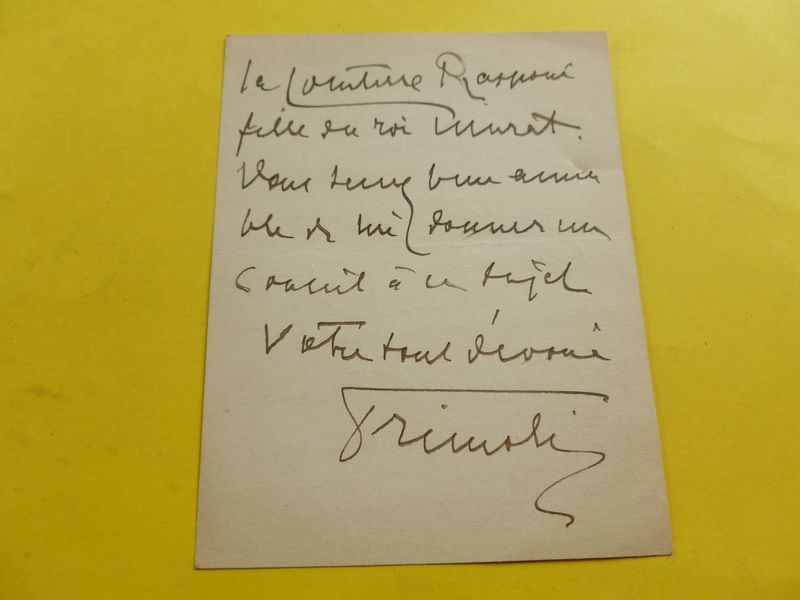 la Comtesse Rasponi
fille du roi Murat.
Vous serez bien aima
ble de me donner un
conseil à ce sujet
Votre tout dévoué
Primoli